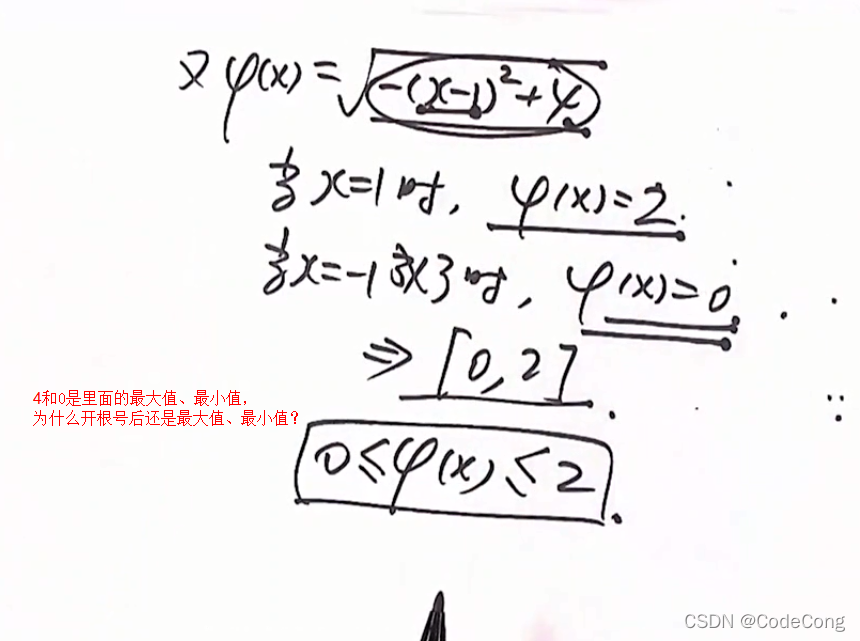 又 φ(x)=√(-(x-1)²+4)
当x=1时, φ(x)=2.
当x=-1或3时, φ(x)=0
⇒ [0,2]
4和0是里面的最大值、最小值，
为什么开根号后还是最大值、最小值？
0≤φ(x)≤2
CSDN @CodeCong